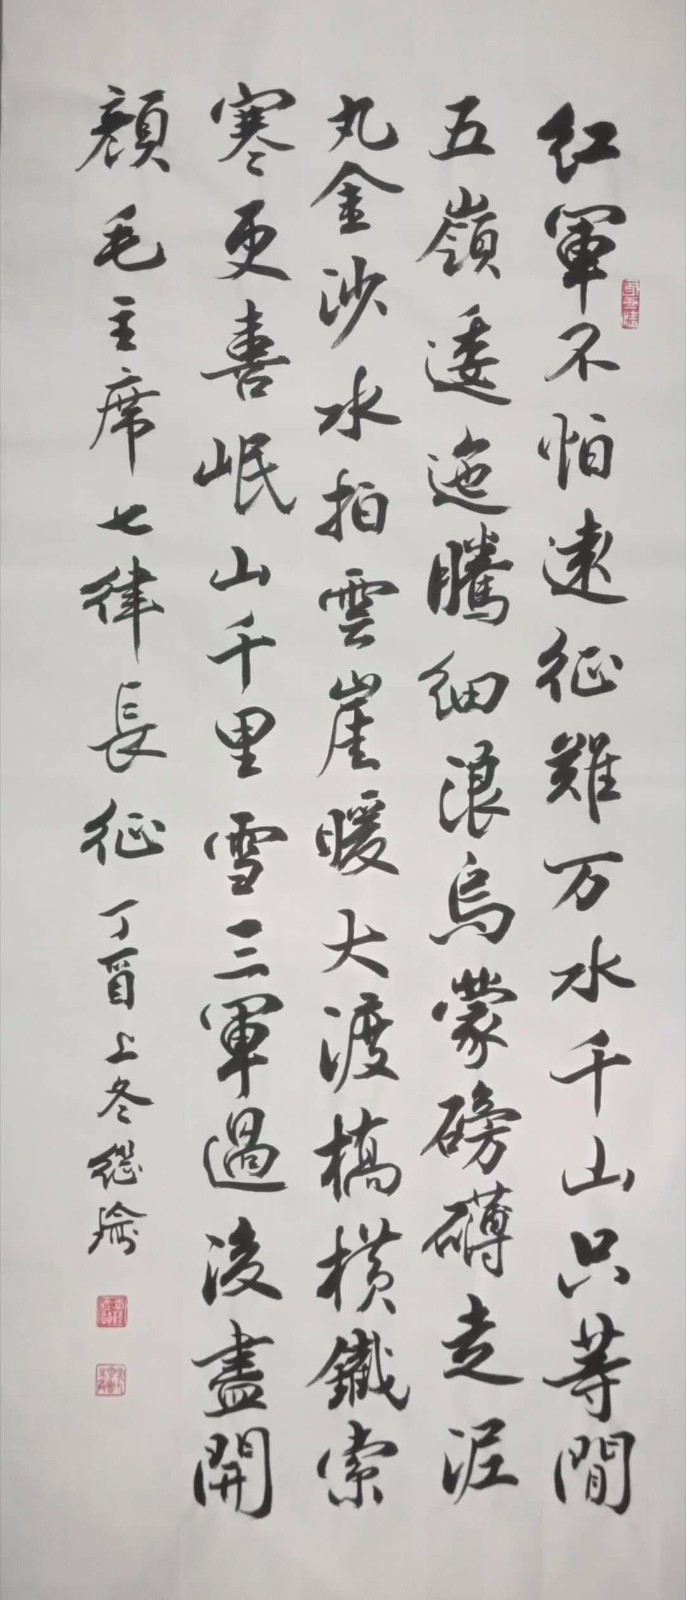 红軍不怕遠征難万水千山只等閒
五嶺逶迤騰細浪烏蒙磅礴走泥
丸金沙水拍雲崖暖大渡橋横鐵索
寒更喜岷山千里雪三軍過後盡開
顔毛主席七律長征丁酉上冬繼瑜